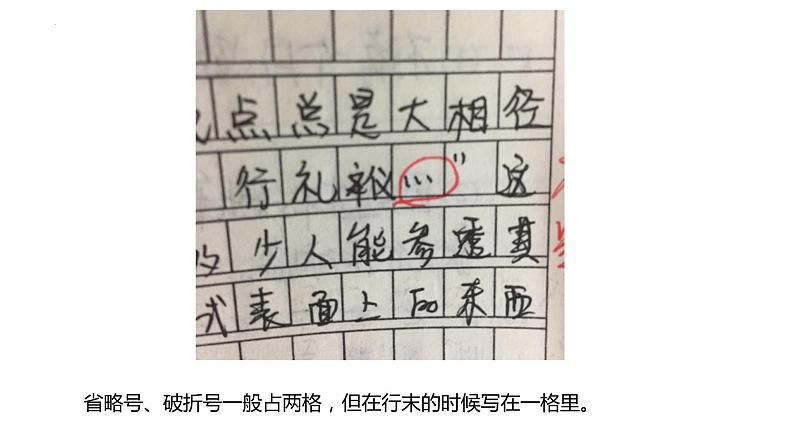 点总是大相径
行礼仪…"这
少人能参透其
式表面上的东西
省略号、破折号一般占两格，但在行末的时候写在一格里。